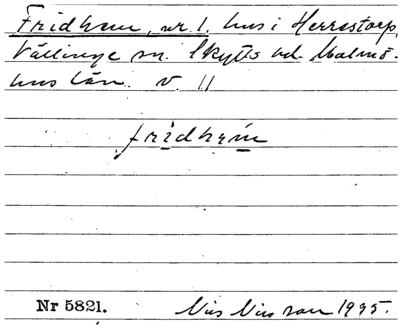 Fridhem, nr. 1. hus i Herrestorp,
Vellinge sn. Skytts hd. Malmö-
hus län. v. 11
fridhem
Nr 5821. Nils Nilsson 1995.